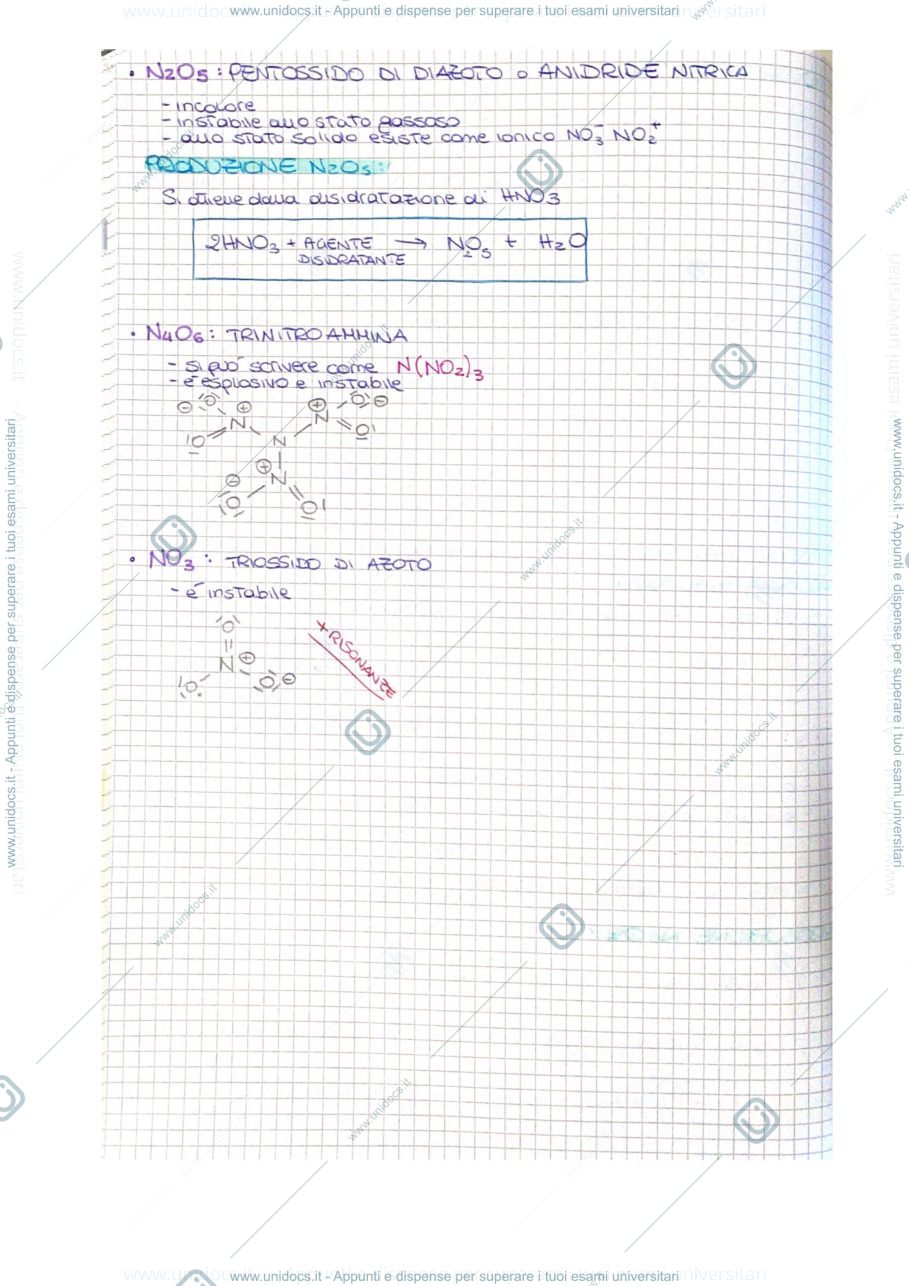 www.unidocs.it - Appunti e dispense per superare i tuoi esami universitari
• N2O5 : PENTOSSIDO DI DIAZOTO o ANIDRIDE NITRICA
- incolore
- instabile allo stato gassoso
- allo stato solido esiste come ionico NO3- NO2+
PRODUZIONE N2O5:
Si ottiene dalla disidratazione di HNO3
2HNO3 + AGENTE DISIDRATANTE → N2O5 + H2O
• N4O6 : TRINITROAMMINA
- si può scrivere come N(NO2)3
- é esplosivo e instabile
• NO3 : TRIOSSIDO DI AZOTO
- é instabile
+ RISONANZE
www.unidocs.it - Appunti e dispense per superare i tuoi esami universitari
www.unidocs.it - Appunti e dispense per superare i tuoi esami universitari
www.unidocs.it - Appunti e dispense per superare i tuoi esami universitari